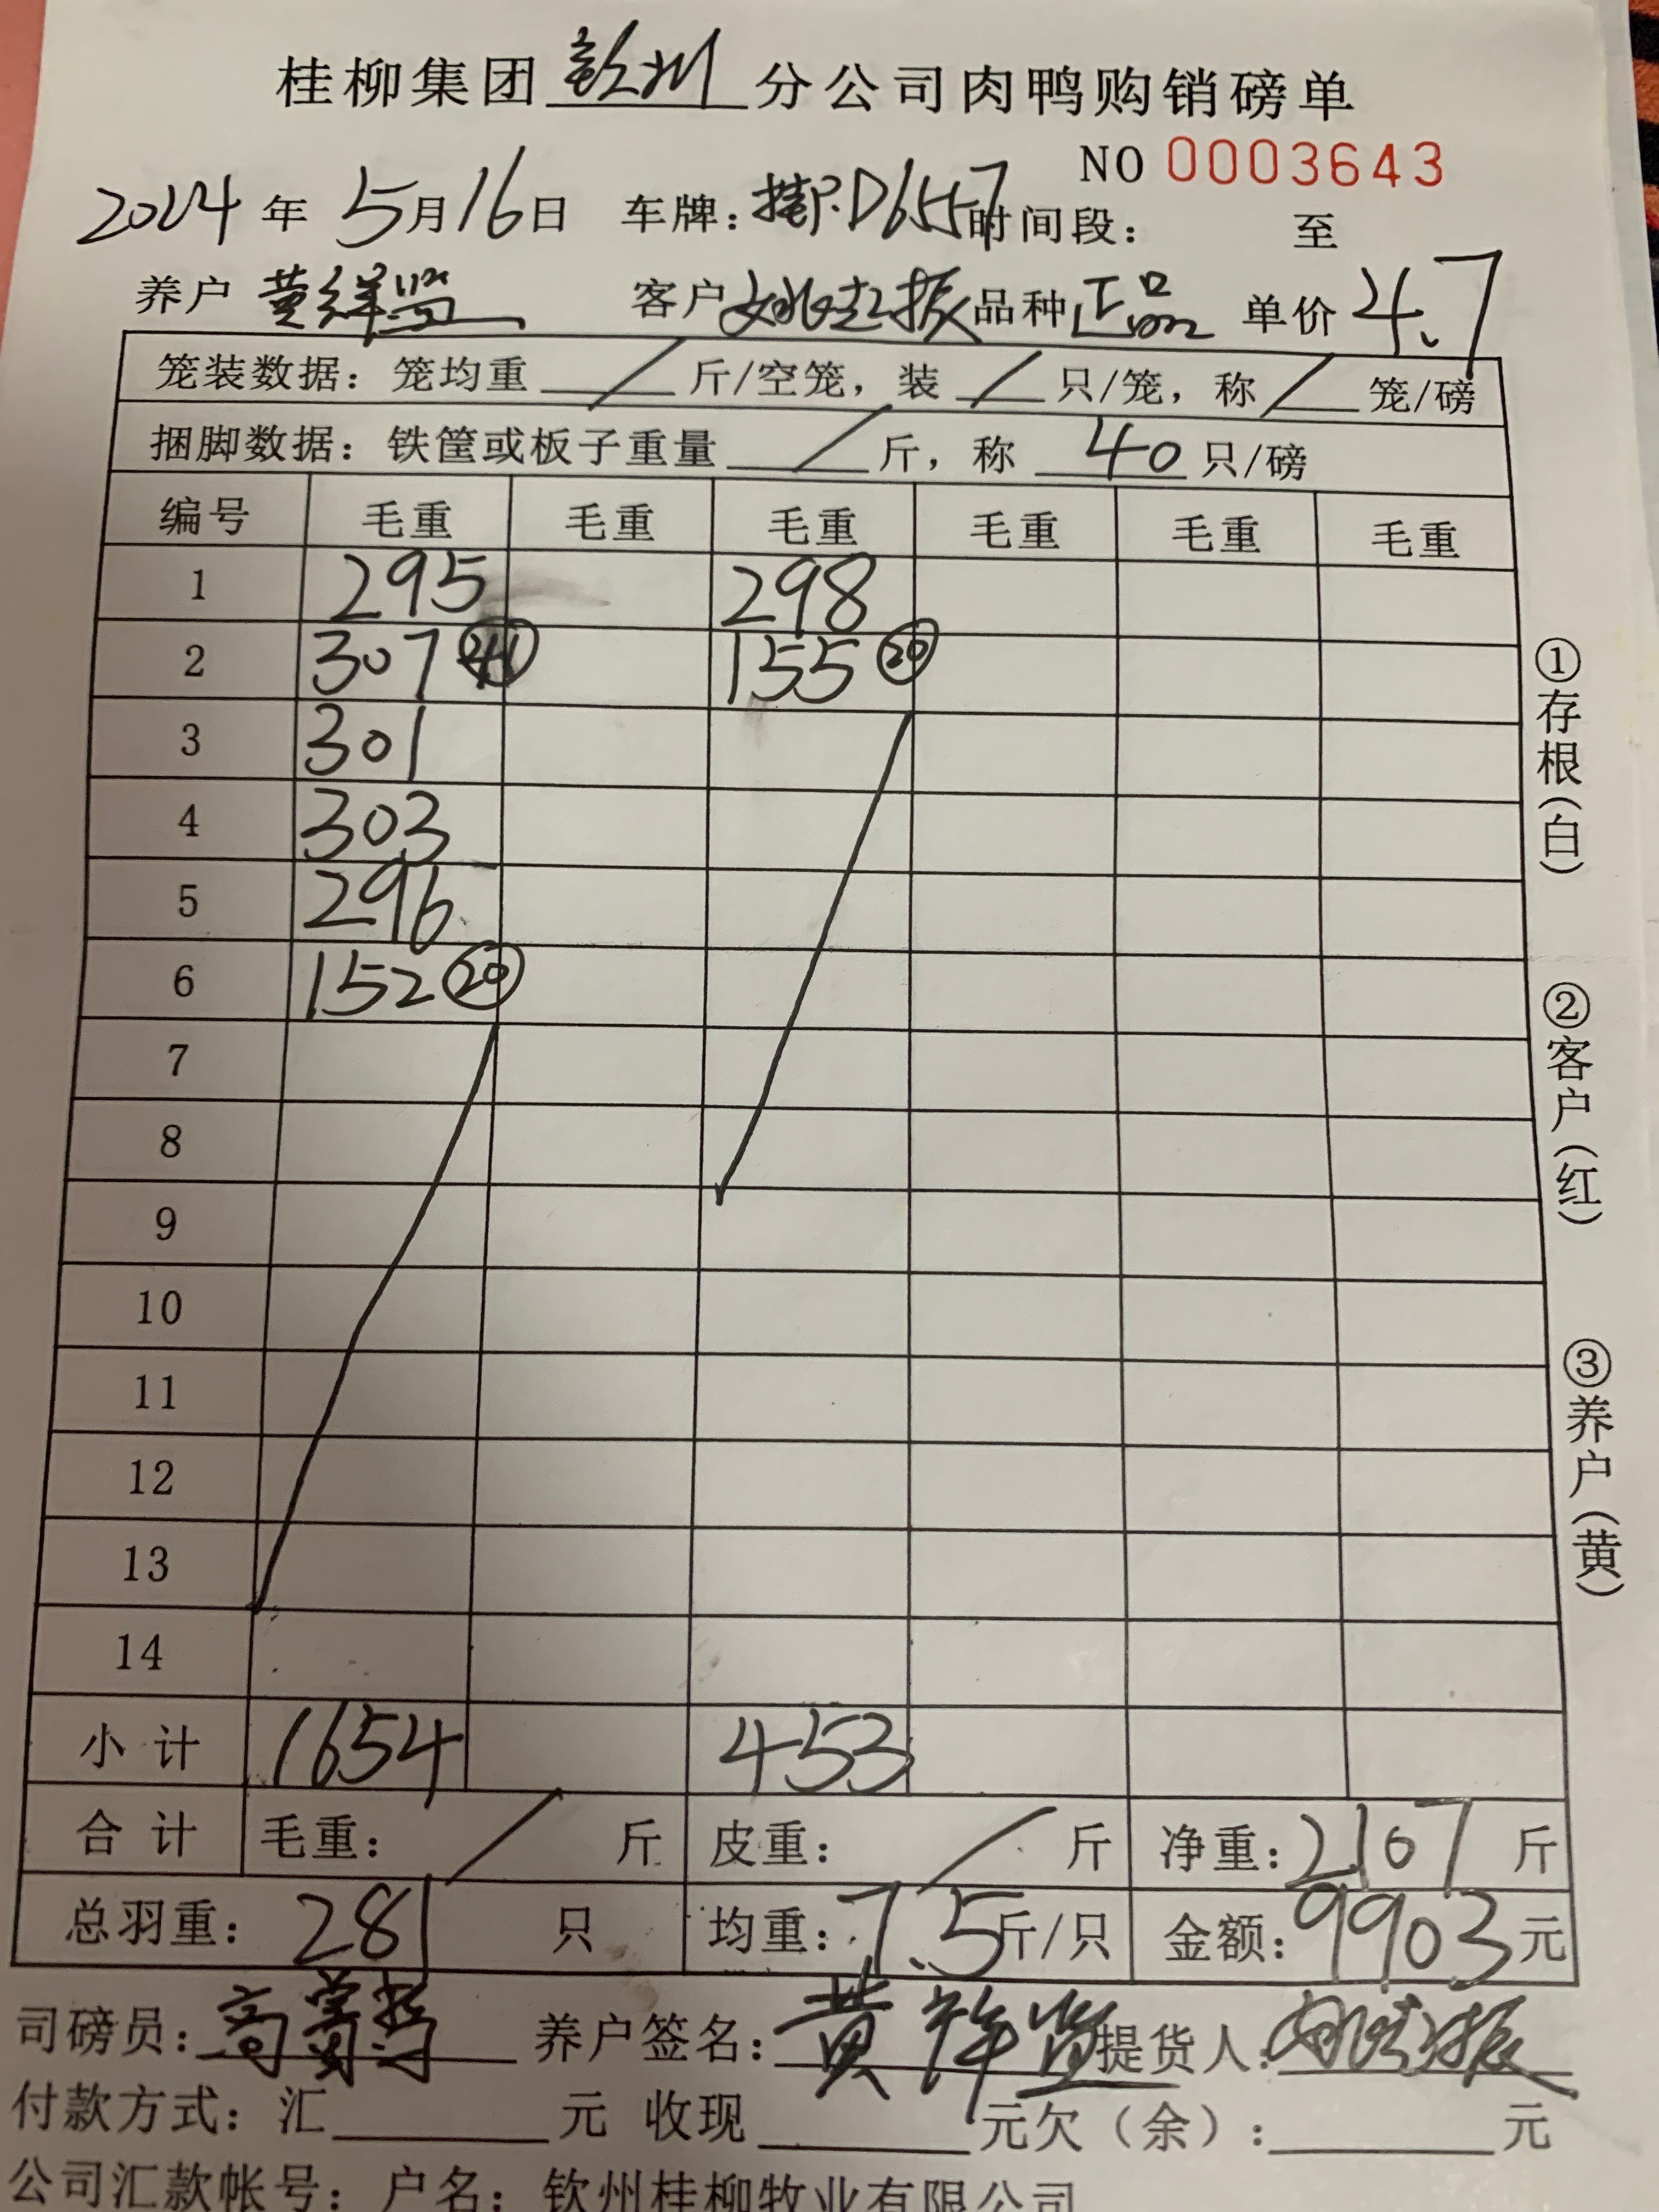 桂柳集团钦州分公司肉鸭购销磅单
NO 0003643
2024年5月16日 车牌：桂P.D6557 时间段： 至
养户 黄祥 客户 姚 振 品种 正品 单价 4.7
笼装数据：笼均重 / 斤/空笼，装 / 只/笼，称 / 笼/磅
捆脚数据：铁筐或板子重量 / 斤，称 40 只/磅
编号 毛重 毛重 毛重 毛重 毛重 毛重
1 295 298
2 307 41 155 20
3 301
4 303
5 296
6 152 20
7
8
9
10
11
12
13
14
小计 1654 453
合计 毛重： / 斤 皮重： / 斤 净重：2107 斤
总羽重：281 只 均重：7.5斤/只 金额：9903元
司磅员：高 养户签名：黄祥 提货人：姚 振
付款方式：汇 元 收现 元欠（余）： 元
公司汇款帐号：户名：钦州桂柳牧业有限公司
①存根（白）
②客户（红）
③养户（黄）